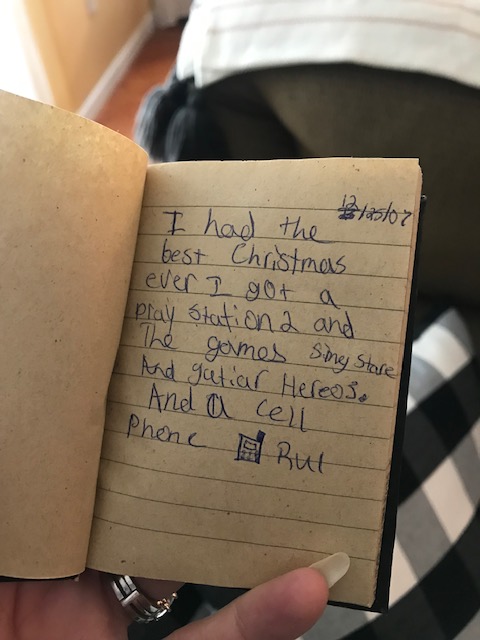 12/25/07
I had the
best Christmas
ever I got a
play station 2 and
The games Sing Stare
And gutiar Hereos.
And a cell
phone Rul